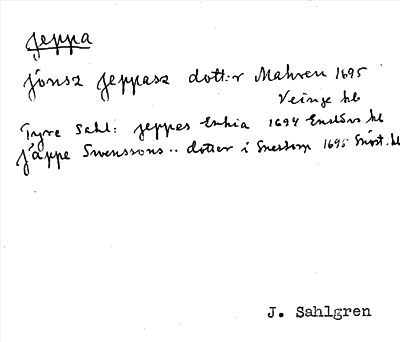 Jeppa
jönsz Jeppasz dott:r Mahren 1695
Veinge hd
Tyre Sahl: jeppes Enkia 1694 Enslövs hd
jäppe Swenssons .. dotter i 1695
J. Sahlgren